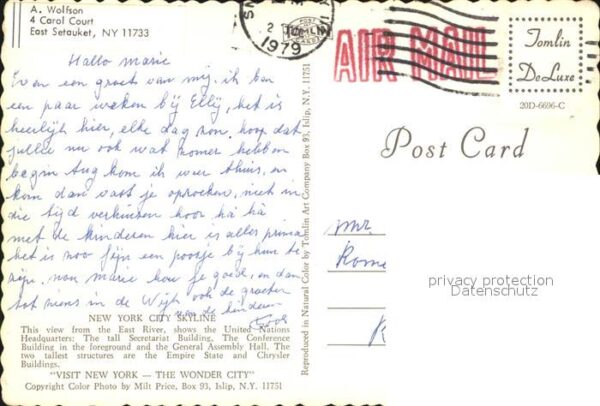 A. Wolfson
4 Carol Court
East Setauket, NY 11733
Hallo marie
Even een groet van mij. ik ben
een paar weken bij Elly, het is
heerlijk hier, elke dag zon. hoop dat
jullie nu ook wat zomer hebben
begin Aug kom ik weer thuis. en
kom dan vast je opzoeken, niet in
die tijd verhuizen hoor há há
met de kinderen hier is alles prima
het is zoo fijn een poosje bij hun te
zijn. nou marie hou je goed, en dan
tot ziens in de Wijk ook de groeten
van de kinderen
Coos
NEW YORK CITY SKYLINE
This view from the East River, shows the United Nations
Headquarters: The tall Secretariat Building, The Conference
Building in the foreground and the General Assembly Hall. The
two tallest structures are the Empire State and Chrysler
Buildings.
"VISIT NEW YORK — THE WONDER CITY"
Copyright Color Photo by Milt Price, Box 93, Islip, N.Y. 11751
Reproduced in Natural Color by Tomlin Art Company Box 93, Islip, N.Y. 11751
1979
AIR MAIL
Tomlin
DeLuxe
20D-6696-C
Post Card
mr.
Rome
privacy protection
Datenschutz